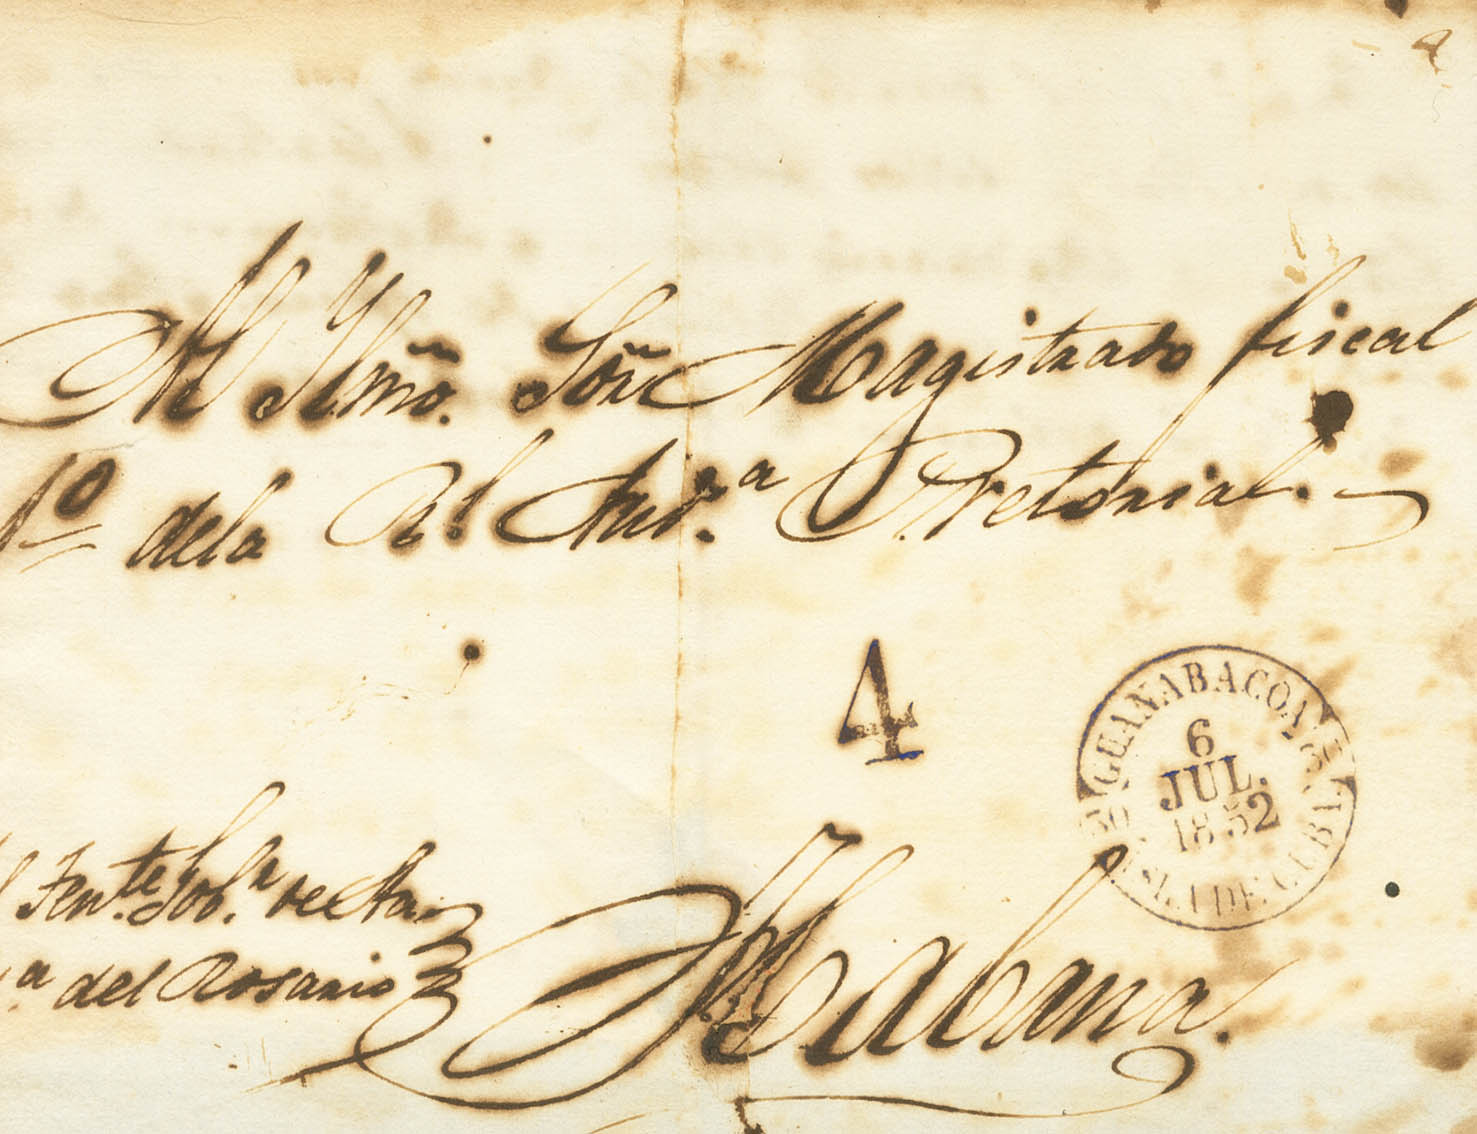 Al Ylmo. Señ Magistrado fiscal
1º de la Rl. Aud.ª Pretorial.
4
GUANABACOA
6
JUL.
1852
ISLA DE CUBA
Ten.te Gob.r de Sta
.ª del Rosario
Habana.